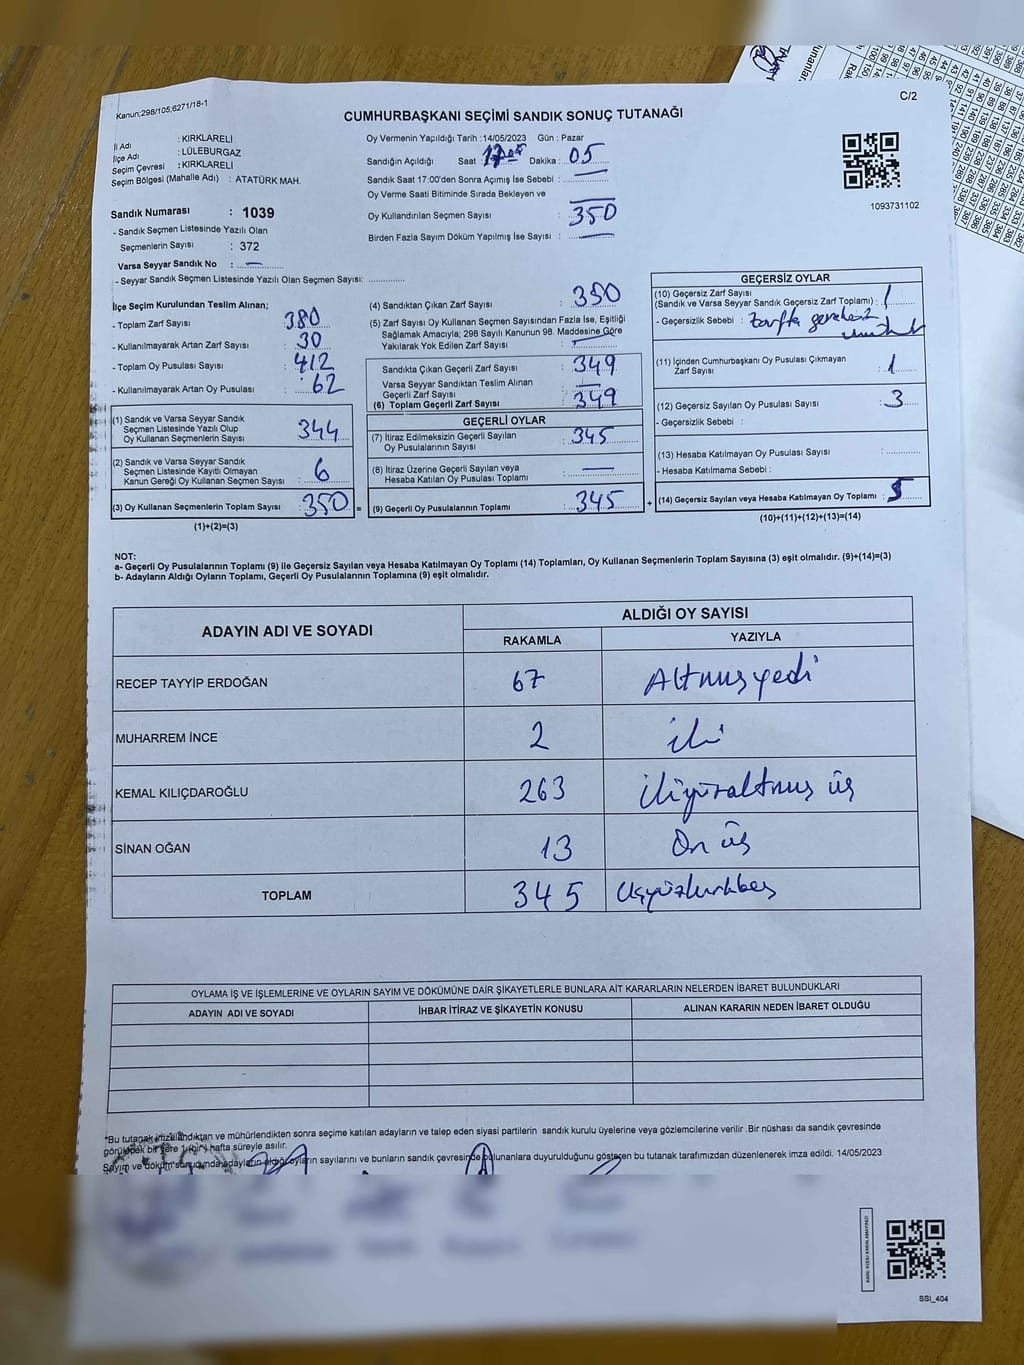 Kanun;298/105,6271/18-1
C/2
CUMHURBAŞKANI SEÇİMİ SANDIK SONUÇ TUTANAĞI
İl Adı : KIRKLARELİ
İlçe Adı : LÜLEBURGAZ
Seçim Çevresi : KIRKLARELİ
Seçim Bölgesi (Mahalle Adı) : ATATÜRK MAH.
Sandık Numarası : 1039
- Sandık Seçmen Listesinde Yazılı Olan
Seçmenlerin Sayısı : 372
Varsa Seyyar Sandık No : —
- Seyyar Sandık Seçmen Listesinde Yazılı Olan Seçmen Sayısı:
Oy Vermenin Yapıldığı Tarih : 14/05/2023 Gün : Pazar
Sandığın Açıldığı Saat : Dakika : 05
Sandık Saat 17:00'den Sonra Açımış İse Sebebi :
Oy Verme Saati Bitiminde Sırada Bekleyen ve
Oy Kullandırılan Seçmen Sayısı : 350
Birden Fazla Sayım Döküm Yapılmış İse Sayısı : —
1093731102
İlçe Seçim Kurulundan Teslim Alınan;
- Toplam Zarf Sayısı : 380
- Kullanılmayarak Artan Zarf Sayısı : 30
- Toplam Oy Pusulası Sayısı : 412
- Kullanılmayarak Artan Oy Pusulası : 62
(1) Sandık ve Varsa Seyyar Sandık
Seçmen Listesinde Yazılı Olup
Oy Kullanan Seçmenlerin Sayısı : 344
(2) Sandık ve Varsa Seyyar Sandık
Seçmen Listesinde Kayıtlı Olmayan
Kanun Gereği Oy Kullanan Seçmen Sayısı : 6
(3) Oy Kullanan Seçmenlerin Toplam Sayısı : 350 =
(1)+(2)=(3)
(4) Sandıktan Çıkan Zarf Sayısı : 350
(5) Zarf Sayısı Oy Kullanan Seçmen Sayısından Fazla İse, Eşitliği
Sağlamak Amacıyla; 298 Sayılı Kanunun 98. Maddesine Göre
Yakılarak Yok Edilen Zarf Sayısı : —
Sandıkta Çıkan Geçerli Zarf Sayısı : 349
Varsa Seyyar Sandıktan Teslim Alınan
Geçerli Zarf Sayısı : —
(6) Toplam Geçerli Zarf Sayısı : 349
GEÇERLİ OYLAR
(7) İtiraz Edilmeksizin Geçerli Sayılan
Oy Pusulalarının Sayısı : 345
(8) İtiraz Üzerine Geçerli Sayılan veya
Hesaba Katılan Oy Pusulası Toplamı : —
(9) Geçerli Oy Pusulalarının Toplamı : 345 +
GEÇERSİZ OYLAR
(10) Geçersiz Zarf Sayısı
(Sandık ve Varsa Seyyar Sandık Geçersiz Zarf Toplamı) : 1
- Geçersizlik Sebebi : Zarfta gereksiz
(11) İçinden Cumhurbaşkanı Oy Pusulası Çıkmayan
Zarf Sayısı : 1
(12) Geçersiz Sayılan Oy Pusulası Sayısı : 3
- Geçersizlik Sebebi :
(13) Hesaba Katılmayan Oy Pusulası Sayısı :
- Hesaba Katılmama Sebebi :
(14) Geçersiz Sayılan veya Hesaba Katılmayan Oy Toplamı : 5
(10)+(11)+(12)+(13)=(14)
NOT:
a- Geçerli Oy Pusulalarının Toplamı (9) ile Geçersiz Sayılan veya Hesaba Katılmayan Oy Toplamı (14) Toplamları, Oy Kullanan Seçmenlerin Toplam Sayısına (3) eşit olmalıdır. (9)+(14)=(3)
b- Adayların Aldığı Oyların Toplamı, Geçerli Oy Pusulalarının Toplamına (9) eşit olmalıdır.
ADAYIN ADI VE SOYADI
ALDIĞI OY SAYISI
RAKAMLA YAZIYLA
RECEP TAYYİP ERDOĞAN 67 Altmışyedi
MUHARREM İNCE 2 iki
KEMAL KILIÇDAROĞLU 263 ikiyüzaltmış üç
SİNAN OĞAN 13 On üç
TOPLAM 345 Üçyüzkırkbeş
OYLAMA İŞ VE İŞLEMLERİNE VE OYLARIN SAYIM VE DÖKÜMÜNE DAİR ŞİKAYETLERLE BUNLARA AİT KARARLARIN NELERDEN İBARET BULUNDUKLARI
ADAYIN ADI VE SOYADI İHBAR İTİRAZ VE ŞİKAYETİN KONUSU ALINAN KARARIN NEDEN İBARET OLDUĞU
*Bu tutanak imzalandıktan ve mühürlendikten sonra seçime katılan adayların ve talep eden siyasi partilerin sandık kurulu üyelerine veya gözlemcilerine verilir .Bir nüshası da sandık çevresinde
görülecek bir yere 1 (bir) hafta süreyle asılır.
Sayım ve döküm sonucunda adayların aldığı oyların sayılarını ve bunların sandık çevresinde bulunanlara duyurulduğunu gösteren bu tutanak tarafımızdan düzenlenerek imza edildi. 14/05/2023
SSI_404